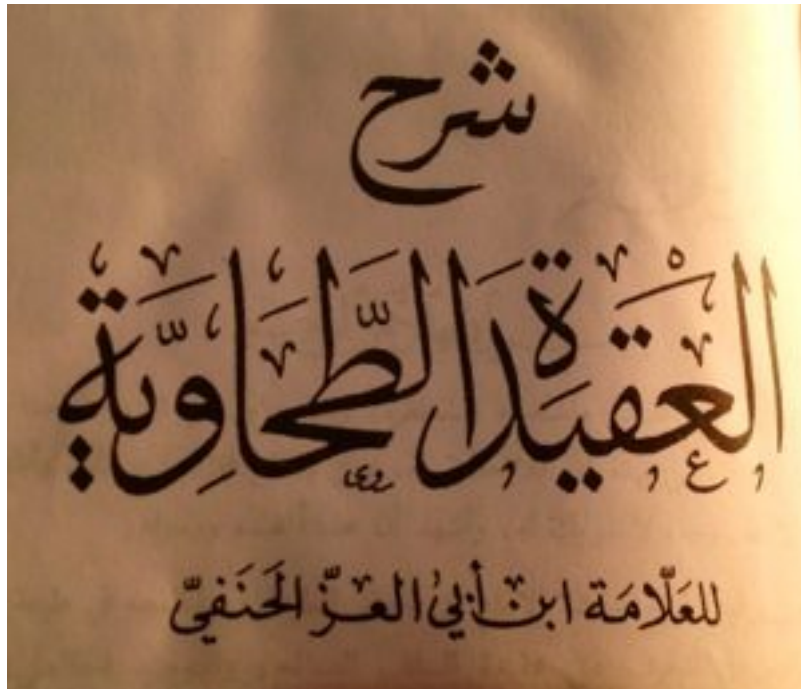 شرح
العقيدة الطحاوية
للعلامة ابن أبي العز الحنفي